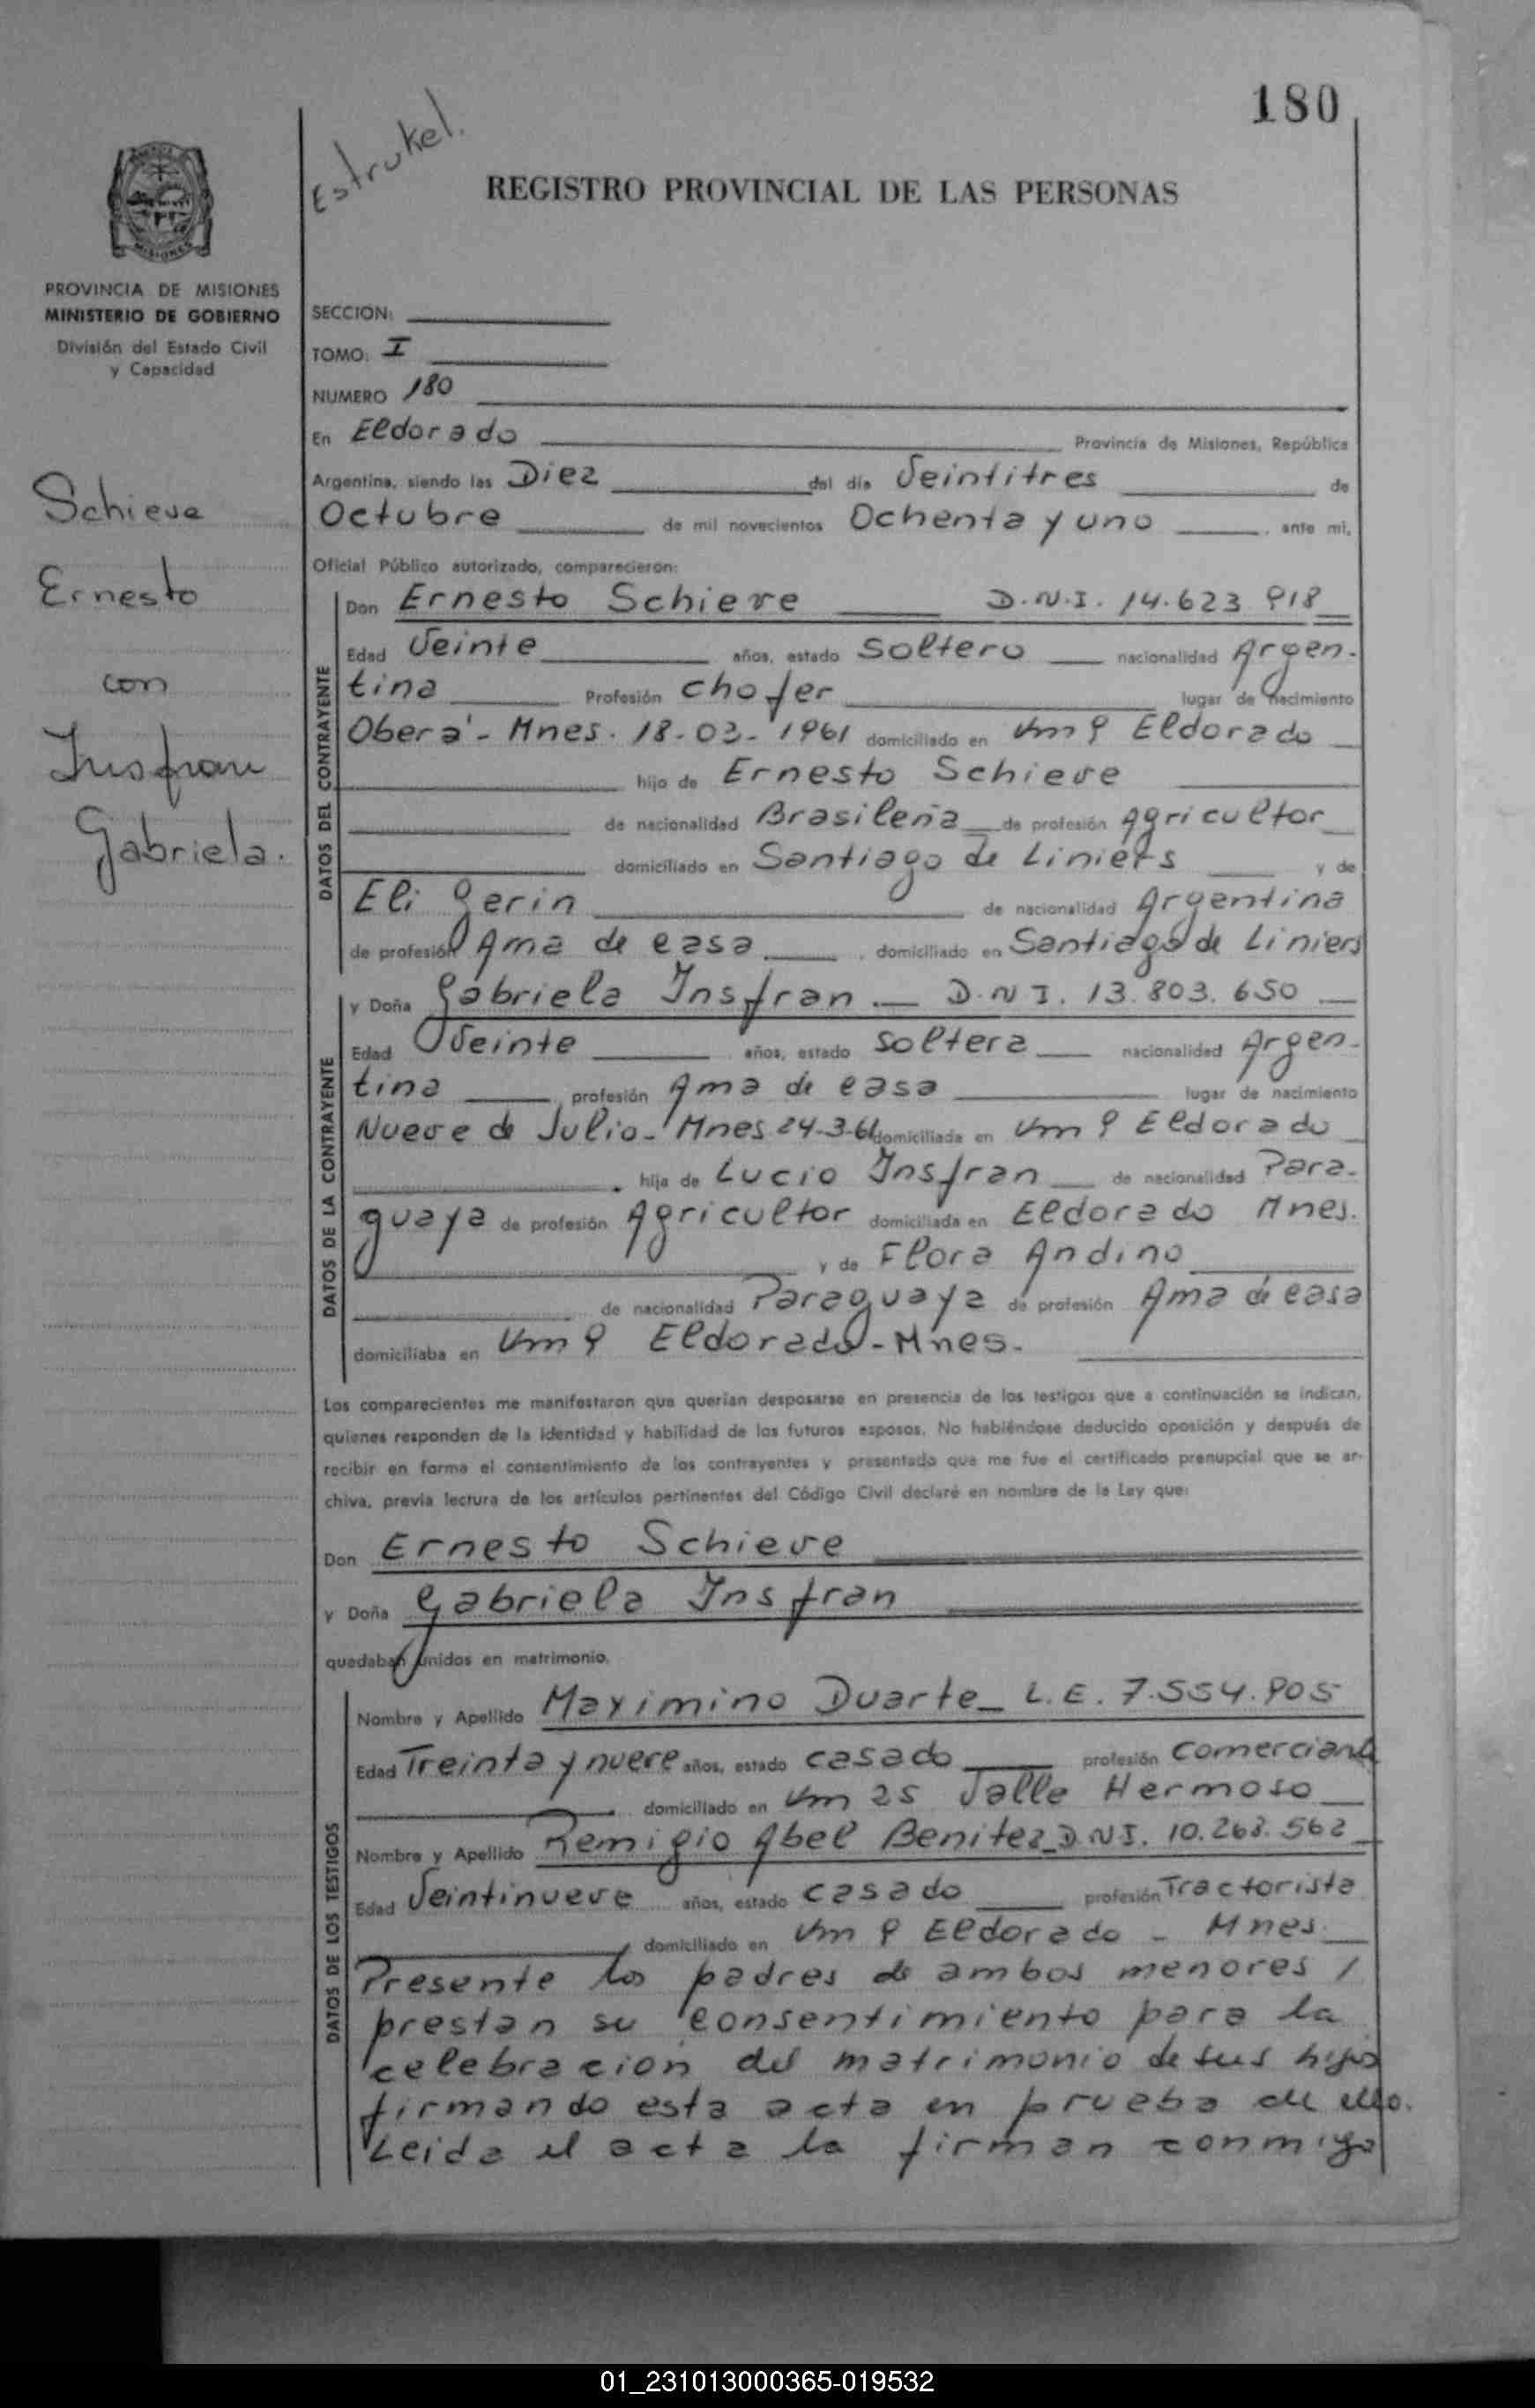 180
Estrukel.
REGISTRO PROVINCIAL DE LAS PERSONAS
MISIONES
PROVINCIA DE MISIONES
MINISTERIO DE GOBIERNO
División del Estado Civil
y Capacidad
Schieve
Ernesto
con
Insfran
Gabriela.
SECCION:
TOMO: I
NUMERO 180
En Eldorado Provincia de Misiones, República
Argentina, siendo las Diez del día Veintitres de
Octubre de mil novecientos Ochenta y uno ante mi,
Oficial Público autorizado, comparecieron:
DATOS DEL CONTRAYENTE
Don Ernesto Schieve D.N.I. 14.623.918
Edad Veinte años, estado Soltero nacionalidad Argen-
tina Profesión Chofer lugar de nacimiento
Oberá - Mnes. 18-03-1961 domiciliado en Km 9 Eldorado
hijo de Ernesto Schieve
de nacionalidad Brasileña de profesión Agricultor
domiciliado en Santiago de Liniers y de
Eli Gerin de nacionalidad Argentina
de profesión Ama de casa, domiciliado en Santiago de Liniers
DATOS DE LA CONTRAYENTE
y Doña Gabriela Insfran - D.N.I. 13.803.650
Edad Veinte años, estado Soltera nacionalidad Argen-
tina profesión Ama de casa lugar de nacimiento
Nueve de Julio - Mnes 24-3-61 domiciliada en Km 9 Eldorado
hija de Lucio Insfran de nacionalidad Para-
guaya de profesión Agricultor domiciliada en Eldorado Mnes.
y de Flora Andino
de nacionalidad Paraguaya de profesión Ama de casa
domiciliaba en Km 9 Eldorado - Mnes.
Los comparecientes me manifestaron que querían desposarse en presencia de los testigos que a continuación se indican,
quienes responden de la identidad y habilidad de los futuros esposos. No habiéndose deducido oposición y después de
recibir en forma el consentimiento de los contrayentes y presentado que me fue el certificado prenupcial que se ar-
chiva, previa lectura de los artículos pertinentes del Código Civil declaré en nombre de la Ley que:
Don Ernesto Schieve
y Doña Gabriela Insfran
quedaban unidos en matrimonio.
DATOS DE LOS TESTIGOS
Nombre y Apellido Maximino Duarte - L.E. 7.554.905
Edad Treinta y nueve años, estado casado profesión Comerciante
domiciliado en Km 25 Valle Hermoso
Nombre y Apellido Remigio Abel Benitez - D.N.I. 10.263.562
Edad Veintinueve años, estado Casado profesión Tractorista
domiciliado en Km 9 Eldorado - Mnes.
Presente los padres de ambos menores /
prestan su consentimiento para la
celebracion del matrimonio de sus hijos
firmando esta acta en prueba de ello.
Leida el acta la firman conmigo
01_231013000365-019532